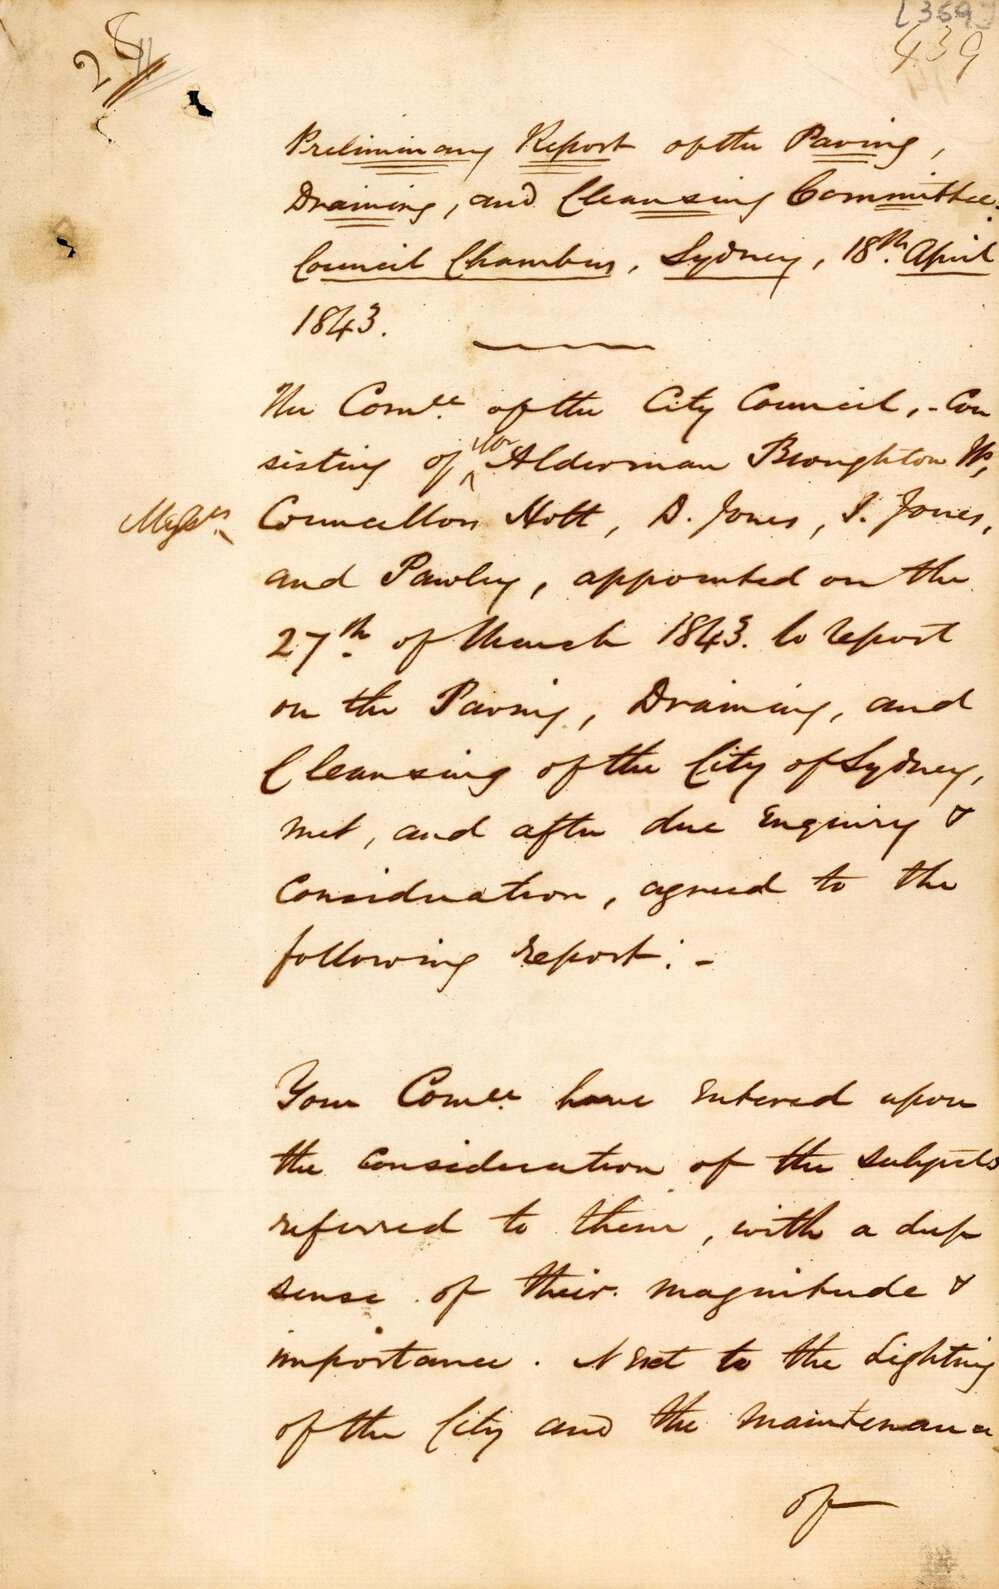 [369]
439
28
Preliminary Report of the Paving,
Draining, and Cleansing Committee.
Council Chambers, Sydney, 18th. April
1843.
The Comee. of the City Council, - Con
sisting of Mr Alderman Broughton
Messrs Councillors Holt, D. Jones, J. Jones,
and Pawley, appointed on the
27th. of March 1843. to report
on the Paving, Draining, and
Cleansing of the City of Sydney,
met, and after due Enquiry &
Consideration, agreed to the
following report: -
Your Comee. have Entered upon
the Consideration of the Subjects
referred to them, with a deep
sense of their magnitude &
importance. Next to the Lighting
of the City and the Maintenance
of